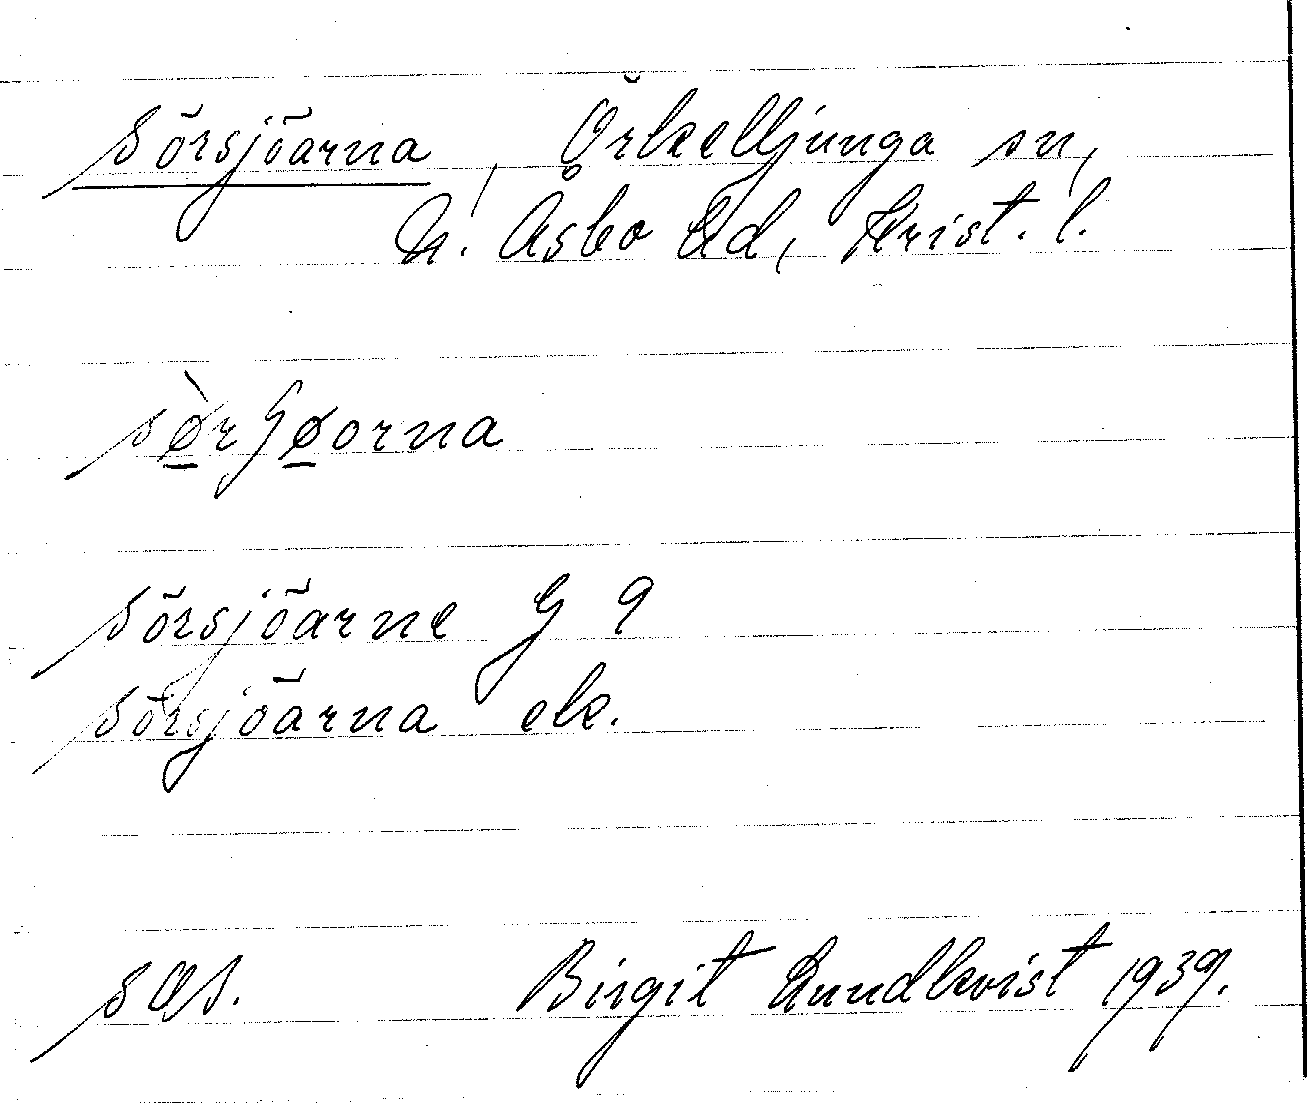 Sörsjöarna, Örkelljunga sn,
N. Åsbo hd, Krist. l.
sø̀rʃøorna
Sörsjöarne G 9
Sörsjöarna ek.
Birgit Lundkvist 1939.